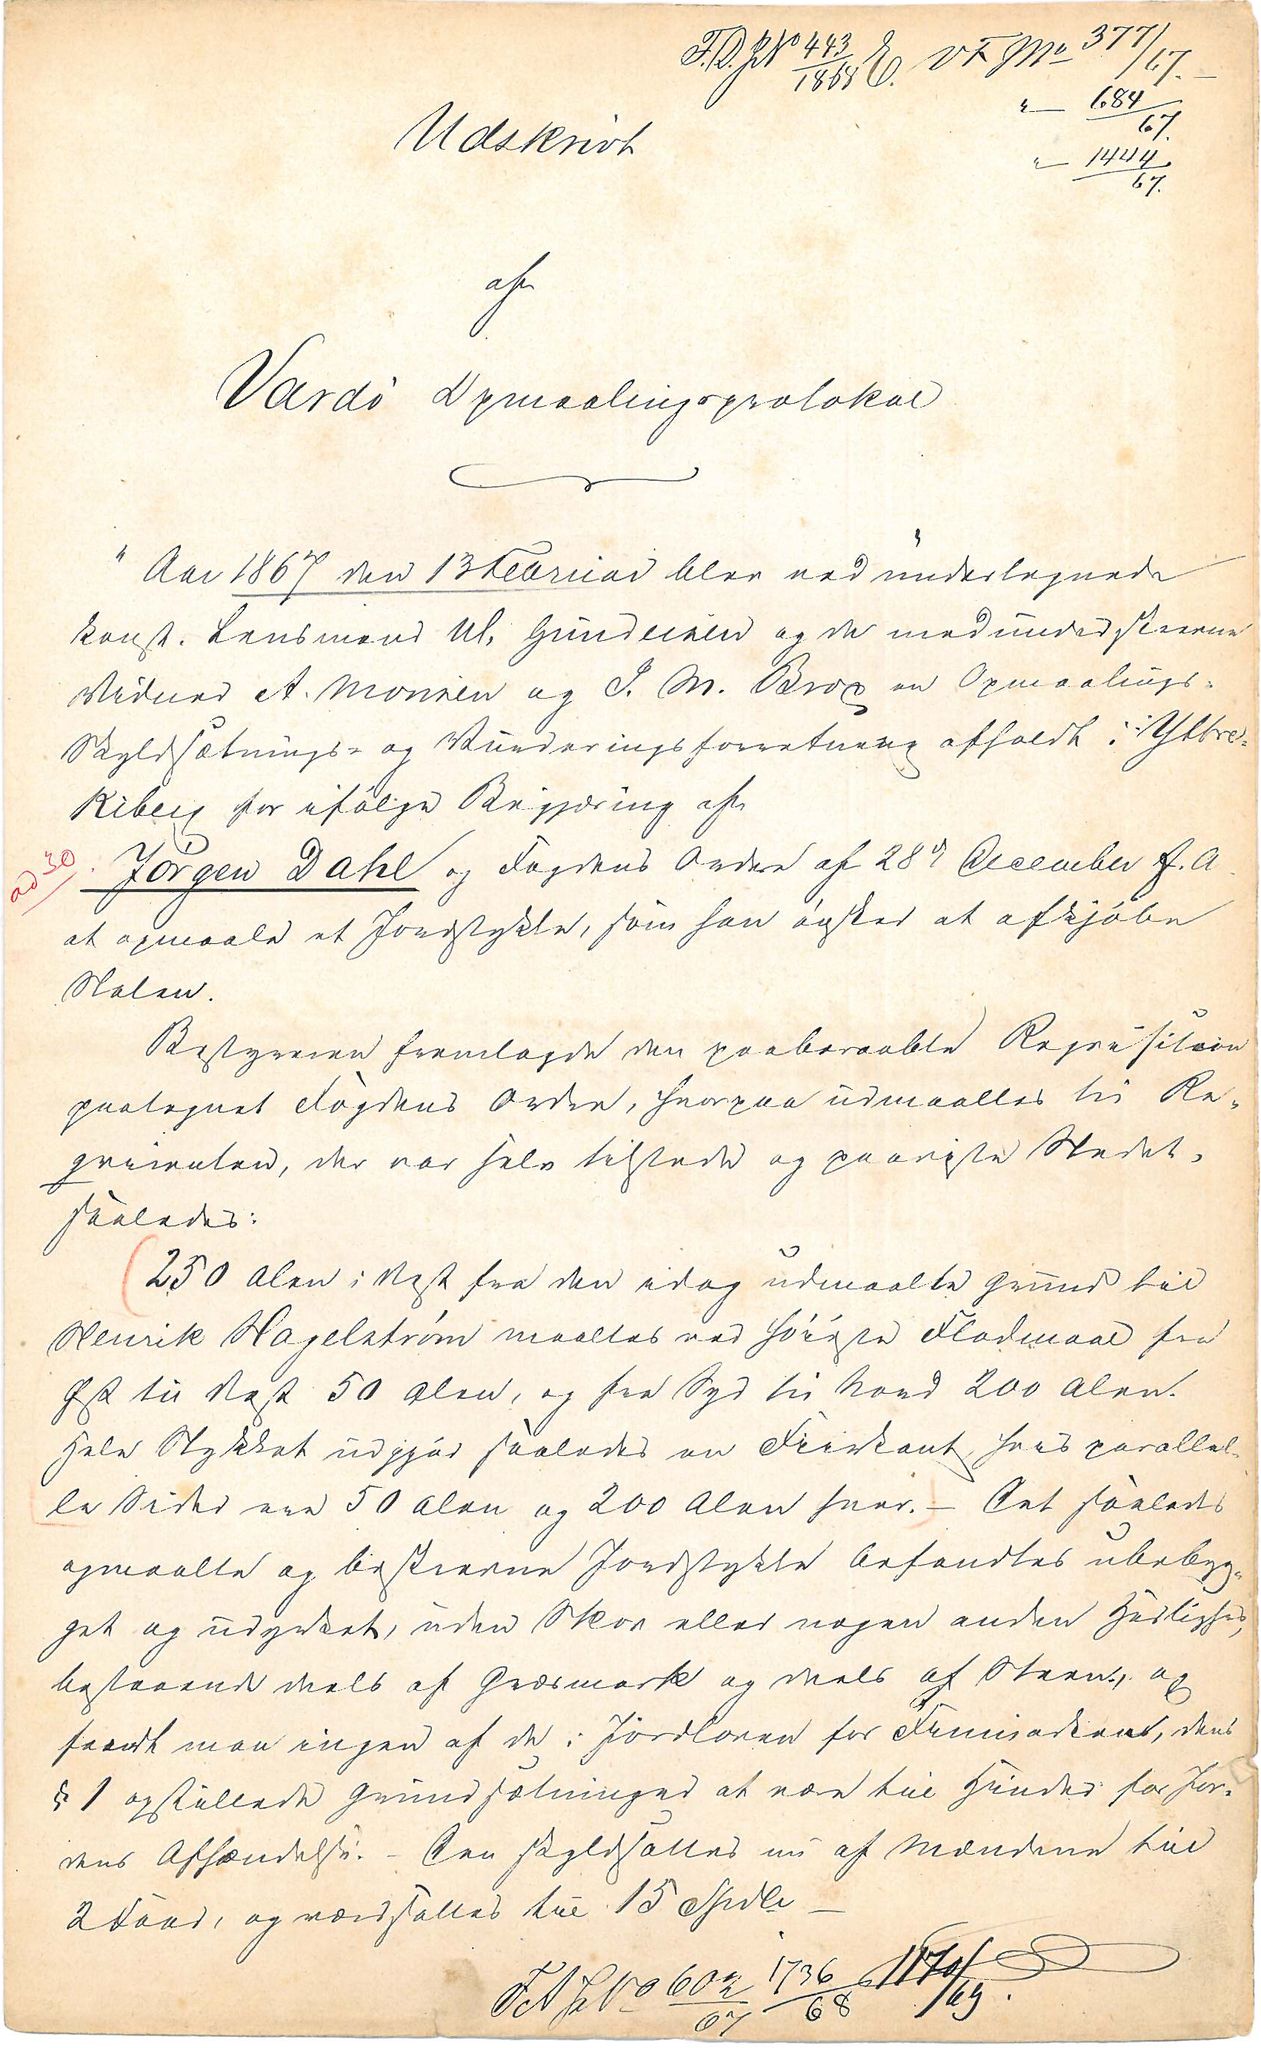 F.D.J.No 443/1868 E. VF No 377/67.
"— 684/67.
"— 1444/67.
Udskrivt
af
Vardö Opmaalingsprotokol
"Aar 1867 den 13 Februar blev ved undertegnede
konst. Lensmand Ul. Gundersen og de medunderskrevne
Vidner A. Monsen og J. M. Brox en Opmaalings-
Skyldsætnings- og Vurderingsforretning afholdt i Yttre-
Kiberg for ifölge Begjæring af
ad 30. Jörgen Dahl og Fogdens Ordre af 28d December f. A.
at opmaale et Jordstykke, som han önsker at afkjöbe
Staten.
Bestyreren fremlagde den paaberaabte Reqvisition
paategnet Fogdens Ordre, hvorpaa udmaaltes til Re-
qvirenten, der var selv tilstede og paaviste Stedet,
saaledes:
250 Alen i Vest fra den idag udmaalte Grund til
Henrik Hagelström maaltes ved höieste Flodmaal fra
Öst til Vest 50 Alen, og fra Syd til Nord 200 Alen.
Hele Stykket udgjör saaledes en Fiirkant, hvis parallel-
le Sider ere 50 Alen og 200 Alen hver. – Det saaledes
opmaalte og beskrevne Jordstykke befandtes ubebyg-
get og udyrket, uden Skov eller nogen anden Herlighed,
bestaaende deels af Græsmark og deels af Steen, og
fandt man ingen af de i Jordloven for Finmarken, dens
§ 1 opstillede Grundsætninger at være til Hinder for Jor-
dens Afhændelse. – Den skyldsattes nu af Mændene til
2 Föør, og værdsattes til 15 Spdlr —
F A J No 602/67 1736/68 1170/69.